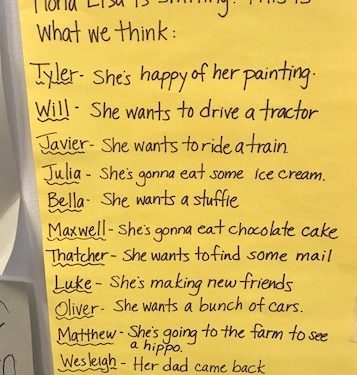 Mona Lisa is smiling. This is
What we think:
Tyler- She's happy of her painting.
Will- She wants to drive a tractor
Javier- She wants to ride a train.
Julia- She's gonna eat some ice cream.
Bella- She wants a stuffie
Maxwell- She's gonna eat chocolate cake
Thatcher- She wants to find some mail
Luke- She's making new friends
Oliver- She wants a bunch of cars.
Matthew- She's going to the farm to see
a hippo.
Wesleigh- Her dad came back